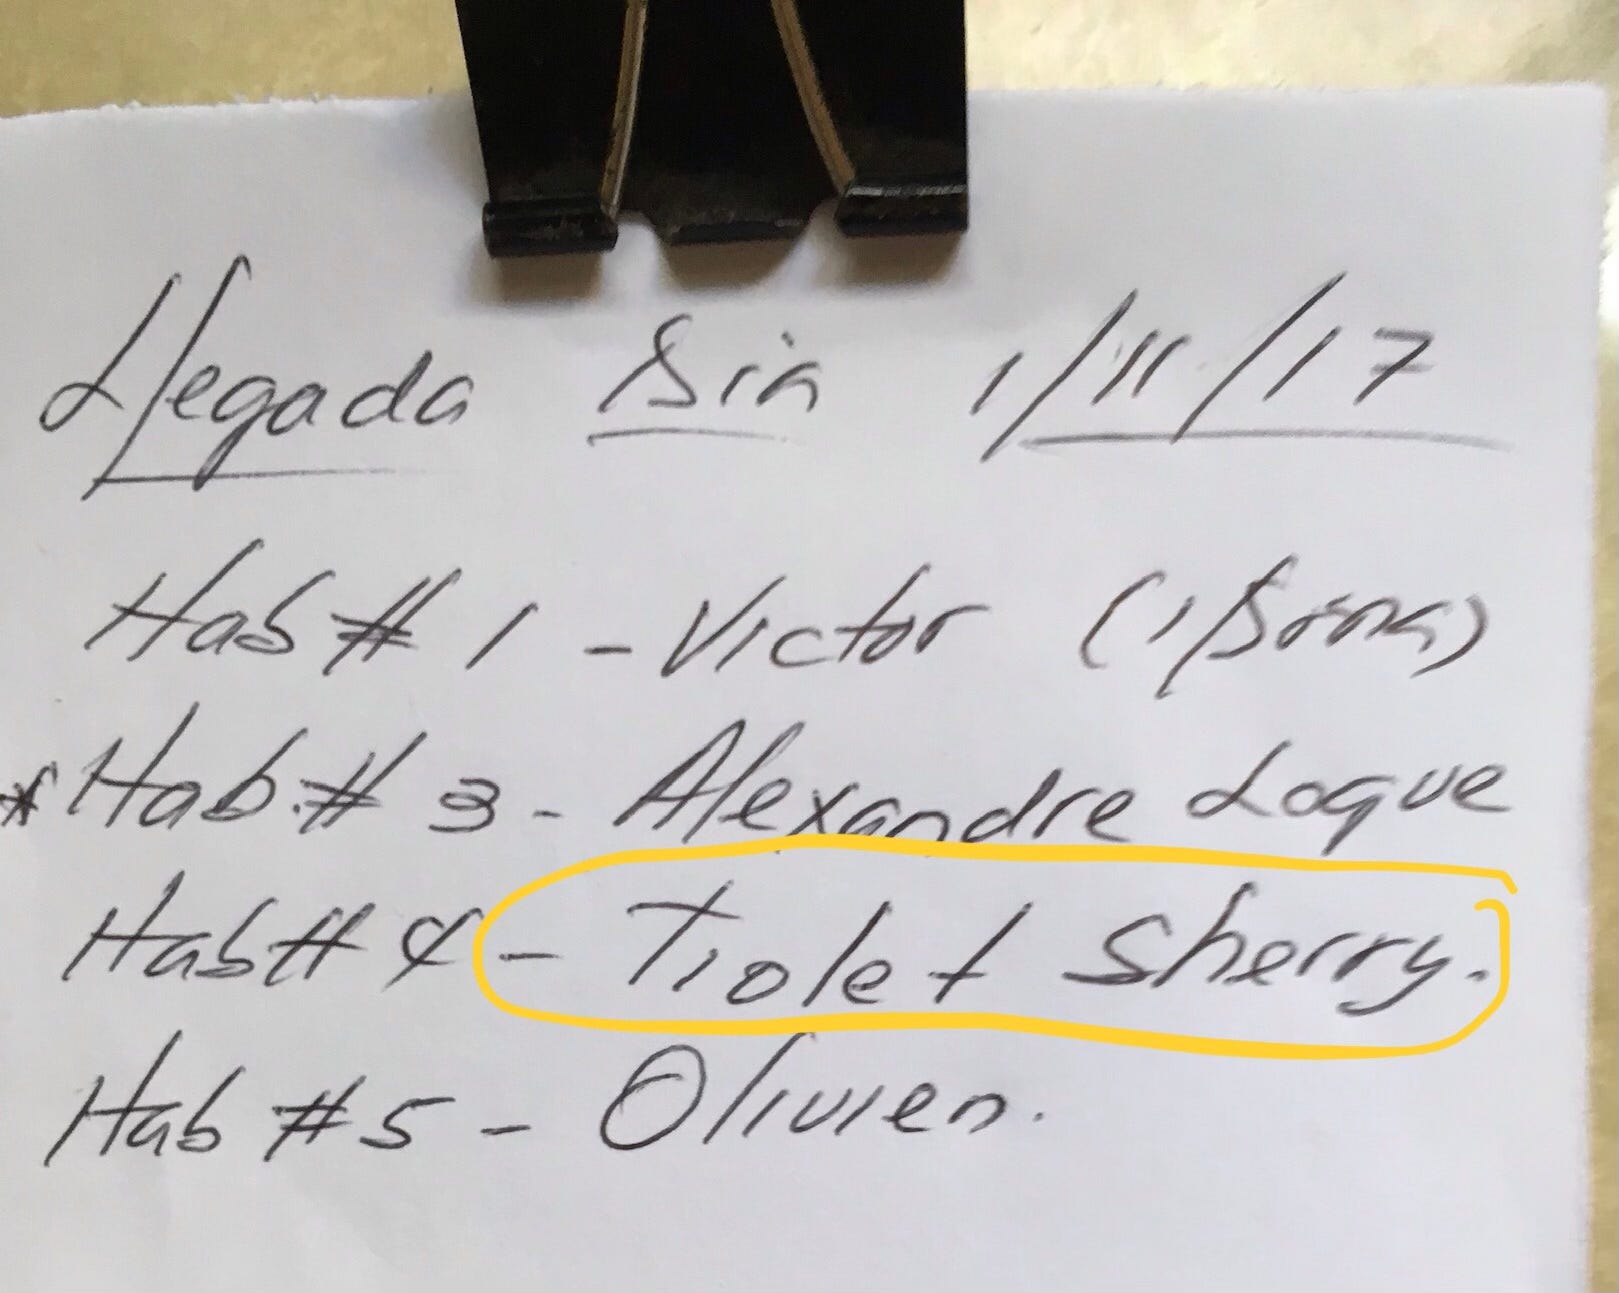 Llegada Dia 1/11/17
Hab # 1 - Victor (1/
* Hab. # 3 - Alexandre Loque
Hab # 4 - Tiolet Sherry.
Hab # 5 - Olivien.